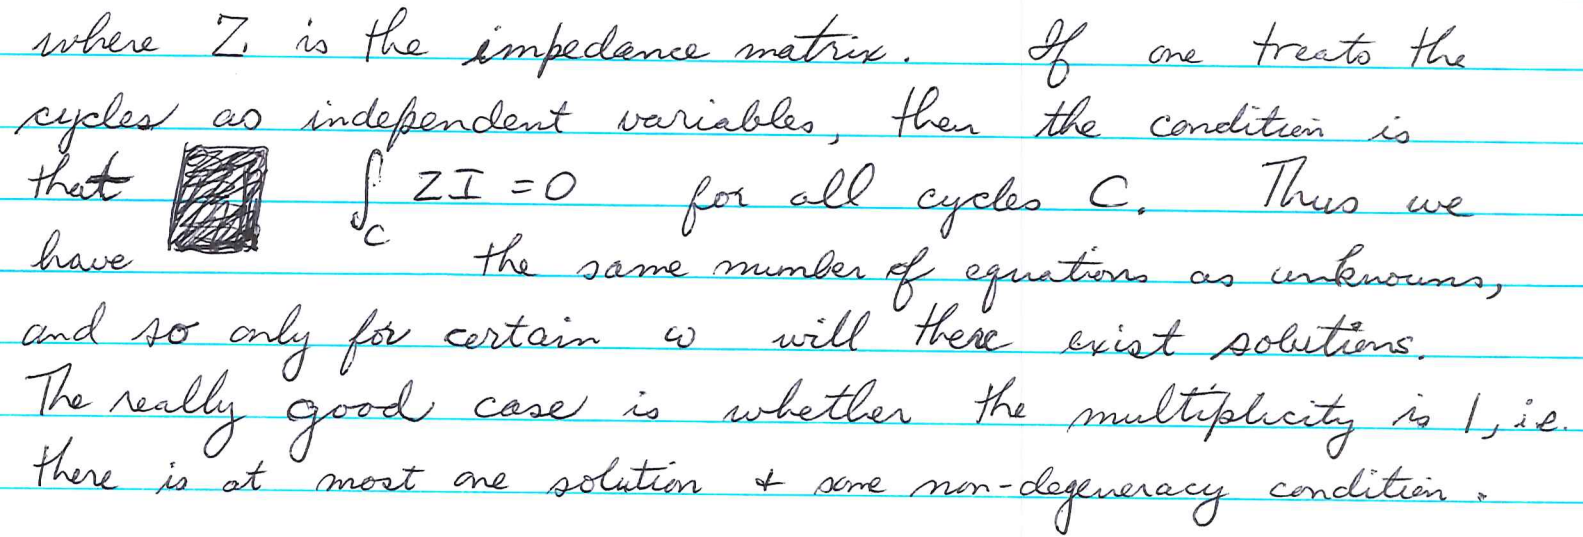 where Z is the impedance matrix. If one treats the
cycles as independent variables, then the condition is
that ∫_C ZI = 0 for all cycles C. Thus we
have the same number of equations as unknowns,
and so only for certain ω will there exist solutions.
The really good case is whether the multiplicity is 1, i.e.
there is at most one solution + some non-degeneracy condition.